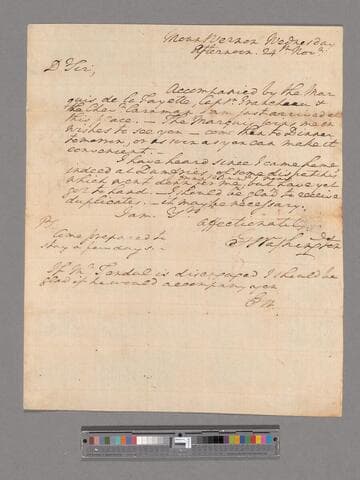 Mount Vernon Wednesday
Afternoon. 24th Novr.
Dr Sir,
Accompanied by the Mar
quis de la Fayette, Captn
the Chevr Caraman I am just arrived at
this place. — The Marquis joins me in
wishes to see you — come then to Dinner
tomorrow, or as soon as you can make it
convenient. —
I have heard since I came home
indeed at Dumfries, of some dispatches
which went down for me, but have yet
got to hand — I should be glad to receive
duplicates, — it may be necessary.
I am Yrs
affectionately
G Washington
PS
Come prepared to
stay a few days. —
If Mr is disengaged I should be
glad if he would accompany you
GW